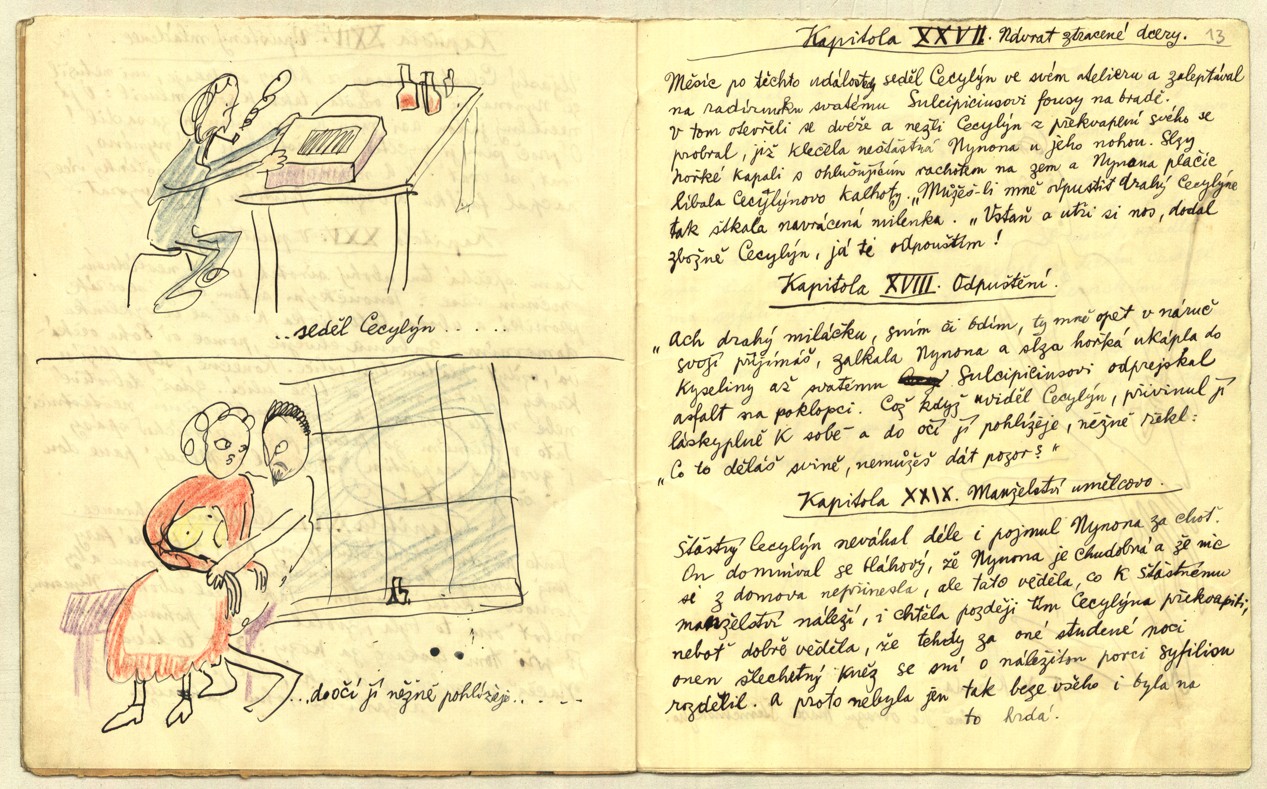 ...seděl Cecylýn . . . . .
...do očí jí něžně pohlížeje. . . - - -
13
Kapitola XXVII. Návrat ztracené dcery.
Měsíc po těchto událostech seděl Cecylýn ve svém atelieru a zaleptával
na radírunku svatému Sulcipiciusovi fousy na bradě.
V tom otevřeli se dvéře a nežli Cecylýn z překvapení svého se
probral, již klečela nešťastná Nynona u jeho nohou. Slzy
hořké kapali s ohlušujícím rachotem na zem a Nynona plačíc
líbala Cecylýnovo kalhoty. „Můžeš-li mně odpustiš drahý Cecylýne
tak štkala navrácená milenka. „Vstaň a utři si nos, dodal
zbožně Cecylýn, já tě odpouštím!
Kapitola XVIII. Odpuštění.
„Ach drahý miláčku, sním či bdím, ty mně opět v náruč
svojí přijímáš, zalkala Nynona a slza hořká ukápla do
kyseliny až svatému Sulcipiciusovi odprejskal
asfalt na poklopci. Což když uviděl Cecylýn, přivinul jí
láskyplně k sobě a do očí jí pohlížeje, něžně řekl:
„Co to děláš svině, nemůžeš dát pozor?“
Kapitola XXIX. Manželství umělcovo.
Šťastný Cecylýn neváhal déle i pojmul Nynona za choť.
On domníval se bláhový, že Nynona je chudobná a že nic
si z domova nepřinesla, ale tato věděla, co k šťastnému
manželství náleží, i chtěla později tím Cecylýna překvapiti,
neboť dobře věděla, že tehdy za oné studené noci
onen šlechetný kněz se sní o náležitou porci syfilisu
rozdělil. A proto nebyla jen tak beze všeho i byla na
to hrdá.